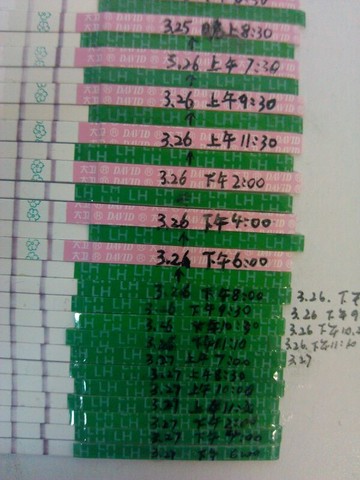 3.25 晚上8:30
3.26 上午7:30
3.26 上午9:30
大卫 DAVID
3.26 上午11:30
大卫 DAVID
3.26 下午2:00
大卫 DAVID
3.26 下午4:00
大卫 DAVID
3.26 下午6:00
3.26 下午8:00
3.26. 下午
3.26 下午9:30
3.26 下午9
3.26 下午10:30
3.26 下午10.
3.26 下午11:10
3.26. 下午11:10
3.27 上午7:00
3.27
3.27 上午8:30
3.27 上午10:00
3.27 上午11:30
3.27 下午2:00
3.27 下午4:00
3.27 下午6:00